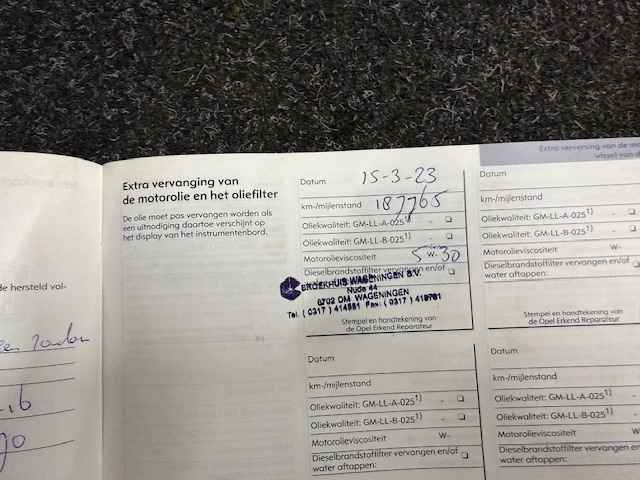 de hersteld vol-
Extra vervanging van
de motorolie en het oliefilter
De olie moet pas vervangen worden als
een uitnodiging daartoe verschijnt op
het display van het instrumentenbord.
Datum 15-3-23
km-/mijlenstand 187765
Oliekwaliteit: GM-LL-A-025¹⁾ - ❑
Oliekwaliteit: GM-LL-B-025¹⁾ - ❑
Motorolieviscositeit 5 W- 30
Dieselbrandstoffilter vervangen en/of
BROEKHUIS WAGENINGEN B.V.
Nude 44
6702 DM WAGENINGEN
Tel. ( 0317 ) 414551 Fax: ( 0317 ) 419761
Stempel en handtekening van
de Opel Erkend Reparateur
Datum
km-/mijlenstand
Oliekwaliteit: GM-LL-A-025¹⁾ - ❑
Oliekwaliteit: GM-LL-B-025¹⁾ - ❑
Motorolieviscositeit W-
Dieselbrandstoffilter vervangen en/of ❑
water aftappen:
Extra verversing van de
Datum
km-/mijlenstand
Oliekwaliteit: GM-LL-A-025¹⁾ -
Oliekwaliteit: GM-LL-B-025¹⁾ -
Motorolieviscositeit W-
Dieselbrandstoffilter vervangen en/of ❑
water aftappen:
Stempel en handtekening van
de Opel Erkend Reparateur
Datum
km-/mijlenstand
Oliekwaliteit: GM-LL-A-025¹⁾ -
Oliekwaliteit: GM-LL-B-025¹⁾ -
Motorolieviscositeit W-
Dieselbrandstoffilter vervangen en/of
water aftappen: